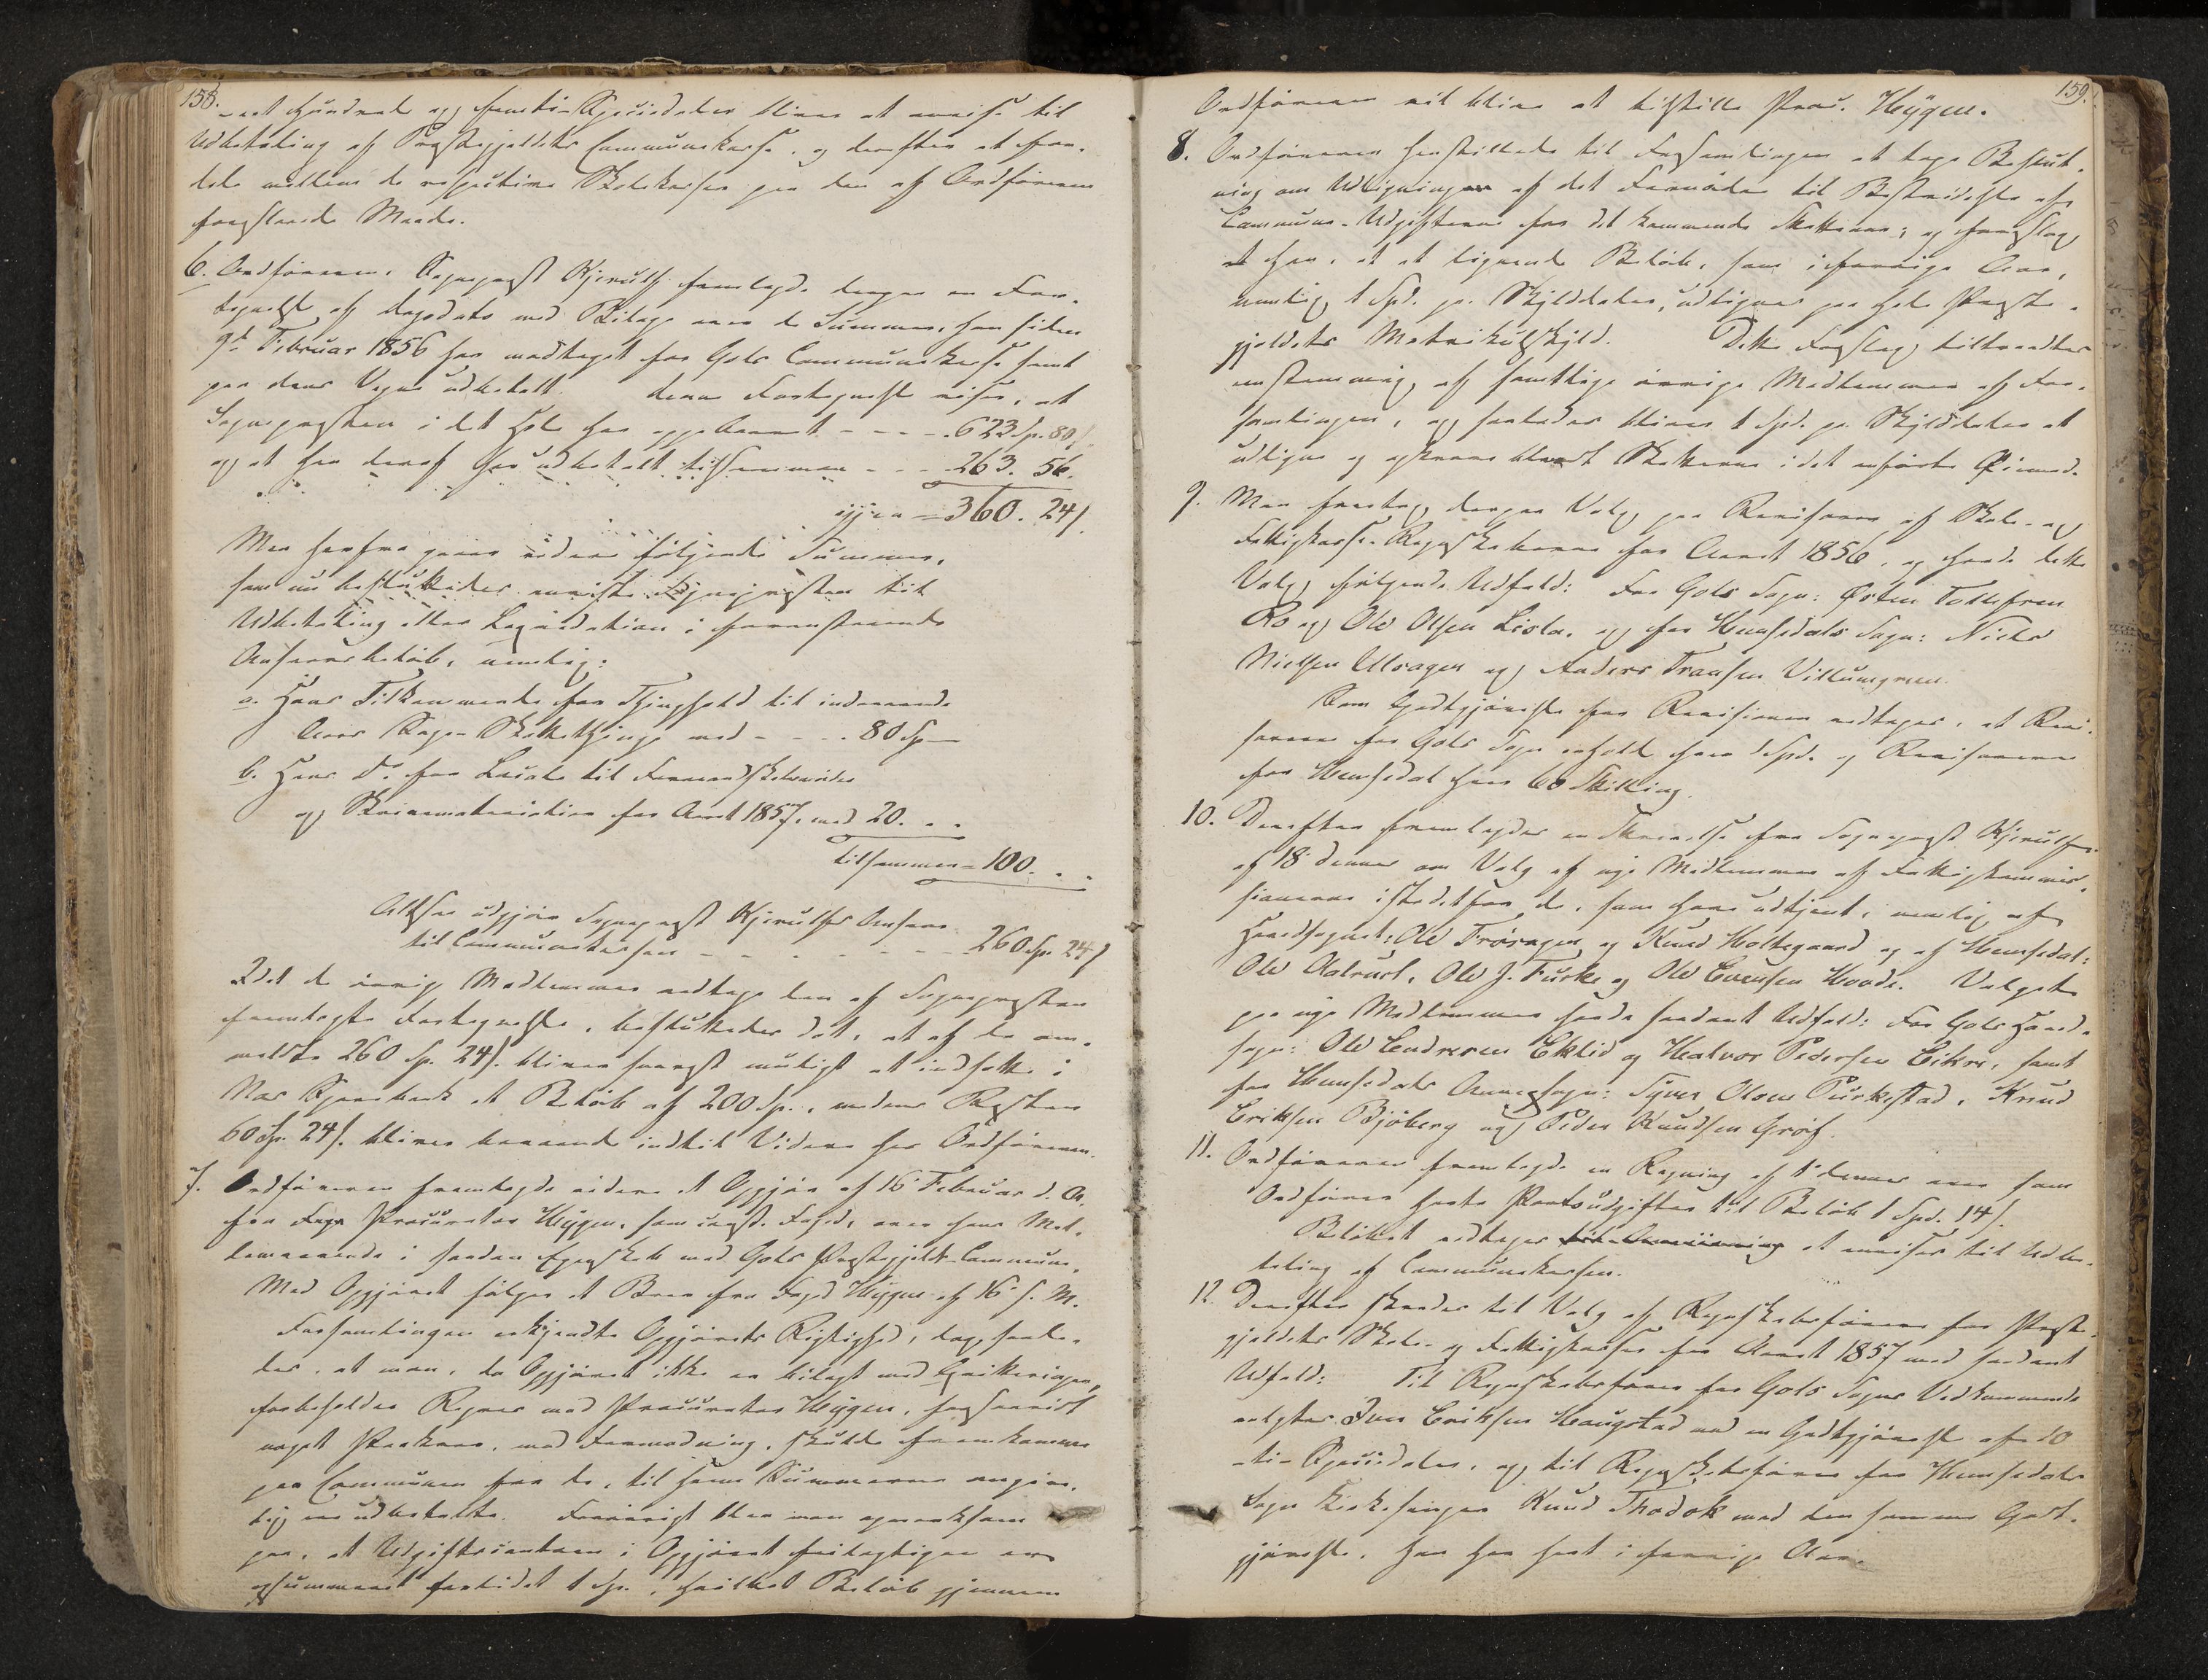 158.
et Hundrede og femti Speciedaler bliver at anvise til
Udbetaling af Præstegjeldets Communekasse, og derefter at for-
dele mellem de respective Skolekasser paa den af Ordføreren
foreslaaede Maade.
6. Ordføreren, Sognepræst Kjerulf fremlagde derpaa en For-
tegnelse af Dagsdato med Bilage over de Summer, han siden
9de Februar 1856 har modtaget for Gols Communekasse samt
paa dens Vegne udbetalt. Denne Fortegnelse viser, at
Sognepræsten i det Hele har oppebaaret - - - - 623 Sp. 80 s.
og at han deraf har udbetalt tilsammen - - - 263. 56.
igjen = 360. 24 s.
Men herfra gaaer videre følgende Summer,
som nu besluttedes anviste Sognepræsten til
Udbetaling eller Liqvidation i foranstaaende
Ansvarsbeløb, nemlig:
a. Hans Tilkommende for Thinghold til indeværende
Aars Sage- Skattething med - - - 80 Sp
b. Hans Do. for Locale til Formandskabsmøder
og Skrivematerialier for Aaret 1857, med 20. - -
tilsammen = 100. - -
Altsaa udgjør Sognepræst Kjerulfs Ansvar
til Communekassen - - - - - - - 260 Sp. 24 s
Idet de øvrige Medlemmer vedtage den af Sognepræsten
fremlagte Fortegnelse, besluttedes det, at af de an-
meldte 260 Sp. 24 s. bliver snarest muligt at indsætte i
Næs Sparebank et Beløb af 200 Sp., medens Resten
60 Sp. 24 s. bliver beroende indtil Videre hos Ordføreren.
7. Ordføreren fremlagde videre et Opgjør af 16 Februar d. A.
fra Procurator Heÿgen, som const. Foged, over hans Mel-
lemværende i saadan Egenskab med Gols Præstegjelds Commune.
Med Opgjøret følger et Brev fra Foged Heÿgen af 16 s. M.
Forsamlingen erkjendte Opgjørets Rigtighed, dog saale-
des, at man, da Opgjøret ikke er bilagt med Qvitteringer,
forbeholder Regres mod Procurator Heÿgen, forsaavidt
noget Paakrav, mod Formodning, skulde fremkomme
paa Communen fra de, til hvem Summerne angive-
lig ere udbetalte. Forøvrigt blev man opmærksom
paa, at Udgiftscontoen i Opgjøret feilagtigen er
opsummeret forlidet 1 Sp., hvilket Beløb gjennem
159.
Ordføreren vil blive at tilstille Proc. Heÿgen.
8. Ordføreren henstillede til Forsamlingen at tage Beslut-
ning om Udligningen af det Fornødne til Bestridelse af
Commune-Udgifterne for det kommende Skatteaar; og foreslog
han, at et lignende Beløb, som i forrige Aar,
nemlig 1 Spd. pr. Skylddaler, udlignes paa hele Præste-
gjeldets Matrikulskyld. Dette Forslag tiltraadtes
enstemmig af samtlige øvrige Medlemmer af For-
samlingen, og saaledes bliver 1 Spd. pr. Skylddaler at
udligne og opkræve blandt Skatterne i det anførte Øiemed.
9. Man foretog derpaa Valg paa Revisorer af Skole- og
Fattigkasse-Regnskaberne for Aaret 1856, og havde dette
Valg følgende Udfald: For Gols Sogn: Østen Tollefsen
Ro og Ole Olsen Lislo, og for Hemsedals Sogn: Niels
Nielsen Ulsagen og Anders Transen Villumgrven.
Som Godtgjørelse for Revisionen vedtages, at Revi-
sorerne for Gols Sogn erholde hver 1 Spd. og Revisorerne
for Hemsedal hver 60 Skilling.
10. Derefter fremlagdes en Skrivelse fra Sognepræst Kjerulf
af 18 dennes om Valg af nye Medlemmer af Fattigkommis-
sionerne istedetfor de, som have udtjent, nemlig af
Hovedsognet: Ole Trøsagen og Knud Holtegaard og af Hemsedal:
Ole Aalrust, Ole J. Turke og Ole Evensen Hovde. Valget
paa nye Medlemmer havde saadant Udfald: For Gols Hoved-
sogn: Ole Endresen Eklid og Halvor Pedersen Eikre, samt
for Hemsedals Annexsogn: Syver Olsen Turkestad, Knud
Eriksen Bjøberg og Peder Knudsen Grøf.
11. Ordføreren fremlagde en Regning af 1 dennes over som
Ordfører havte Portoudgifter til Beløb 1 Spd. 14 s.
Beløbet vedtages at anvises til Udbe-
taling af Communekassen.
12. Derefter skredes til Valg af Regnskabsførere for Præste-
gjeldets Skole- og Fattigkasser for Aaret 1857 med saadant
Udfald: Til Regnskabsfører for Gols Sogns Vedkommende
valgtes Iver Eriksen Haugstad med en Godtgjørelse af 10
-ti- Speciedaler, og til Regnskabsfører for Hemsedals
Sogn Kirkesanger Knud Thodok med den samme Godt-
gjørelse, han har havt i forrige Aar.